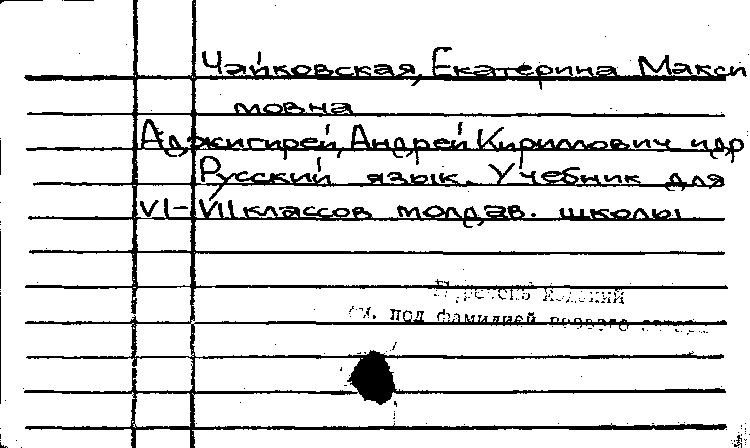 Чайковская, Екатерина Макси
мовна
Аджигирей, Андрей Кириллович идр
Русский язык. Учебник для
VI-VII классов молдав. школы
см. под фамилией первого автора